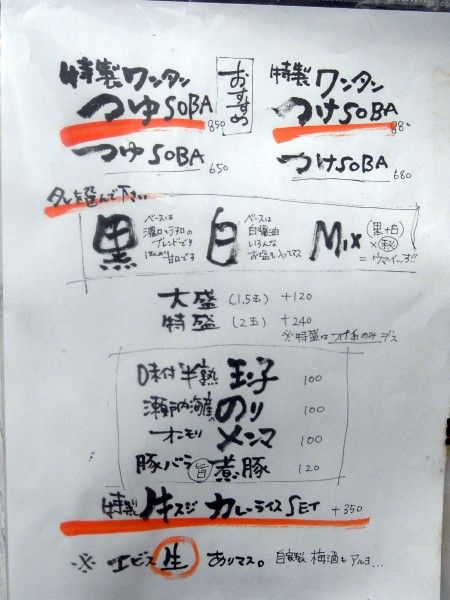 特製ワンタン
つゆSOBA 850
おすすめ
特製ワンタン
つけSOBA 880
つゆSOBA 650
つけSOBA 680
タレを選んで下さい
黒
ベースは
濃口とタマリの
ブレンドです
ほんのり甘口です
白
ベースは
白醤油
いろんな
お塩も入ってマス
Mix
(黒+白)
×(秘)
=ウマイーッす!!
大盛(1.5玉) +120
特盛(2玉) +240
※特盛はつけ系のみデス
味付半熟玉子 100
瀬戸内海産ののり 100
オニモリメンマ 100
豚バラ旨煮豚 120
特製牛スジカレーライスSET +350
※エビス生あります。自家製梅酒もアルヨ...